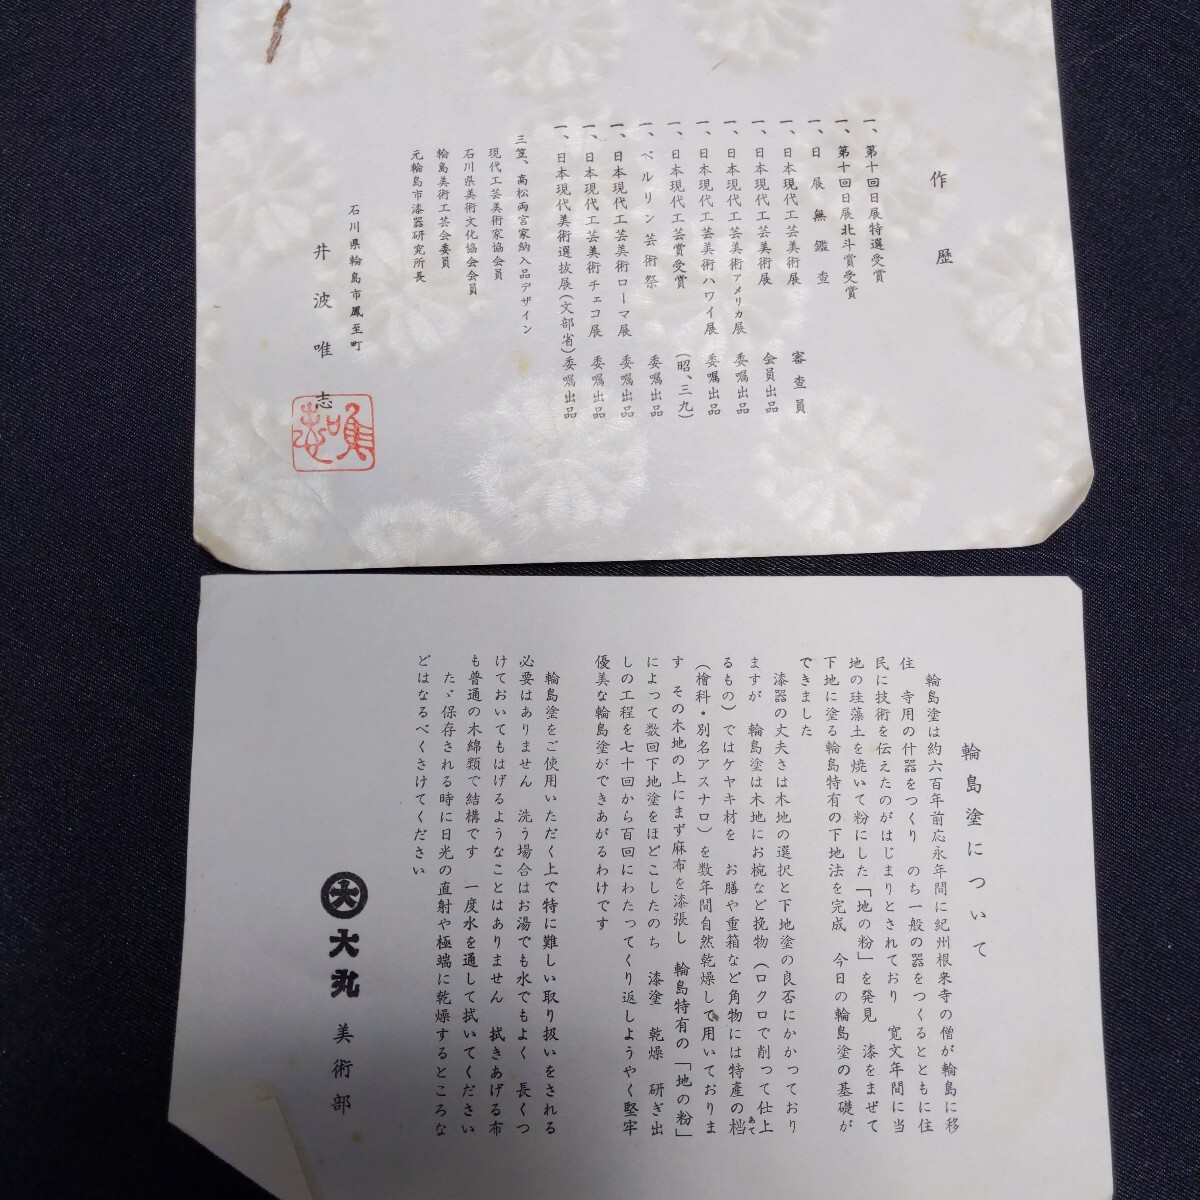 作歴
一、第十回日展特選受賞
一、第十回日展北斗賞受賞
一、日展無鑑査
一、日本現代工芸美術展 審査員
一、日本現代工芸美術展 会員出品
一、日本現代工芸美術アメリカ展 委嘱出品
一、日本現代工芸美術ハワイ展 委嘱出品
一、日本現代工芸賞受賞 (昭、三九)
一、ベルリン芸術祭 委嘱出品
一、日本現代工芸美術ローマ展 委嘱出品
一、日本現代工芸美術チェコ展 委嘱出品
一、日本現代美術選抜展(文部省)委嘱出品
三笠、高松両宮家納入品デザイン
現代工芸美術家協会員
石川県美術文化協会会員
輪島美術工芸会委員
元輪島市漆器研究所長
石川県輪島市鳳至町
井波唯志
唯志
輪島塗について
輪島塗は約六百年前応永年間に紀州根来寺の僧が輪島に移
住 寺用の什器をつくり のち一般の器をつくるとともに住
民に技術を伝えたのがはじまりとされており 寛文年間に当
地の珪藻土を焼いて粉にした「地の粉」を発見 漆をまぜて
下地に塗る輪島特有の下地法を完成 今日の輪島塗の基礎が
できました
漆器の丈夫さは木地の選択と下地塗の良否にかかっており
ますが 輪島塗は木地にお椀など挽物(ロクロで削って仕上
るもの)ではケヤキ材を お膳や重箱など角物には特産の档あて
(檜科・別名アスナロ)を数年間自然乾燥して用いておりま
す その木地の上にまず麻布を漆張し 輪島特有の「地の粉」
によって数回下地塗をほどこしたのち 漆塗 乾燥 研ぎ出
しの工程を七十回から百回にわたってくり返しようやく堅牢
優美な輪島塗ができあがるわけです
輪島塗をご使用いただく上で特に難しい取り扱いをされる
必要はありません 洗う場合はお湯でも水でもよく 長くつ
けておいてもはげるようなことはありません 拭きあげる布
も普通の木綿類で結構です 一度水を通して拭いてください
たゞ保存される時に日光の直射や極端に乾燥するところな
どはなるべくさけてください
大 大丸 美術部